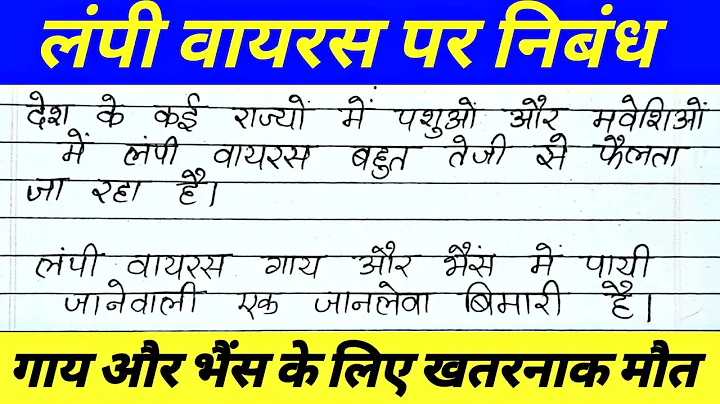 लंपी वायरस पर निबंध
देश के कई राज्यों में पशुओं और मवेशिओं
में लंपी वायरस बहुत तेजी से फैलता
जा रहा है।
लंपी वायरस गाय और भैंस में पायी
जानेवाली एक जानलेवा बिमारी है।
गाय और भैंस के लिए खतरनाक मौत